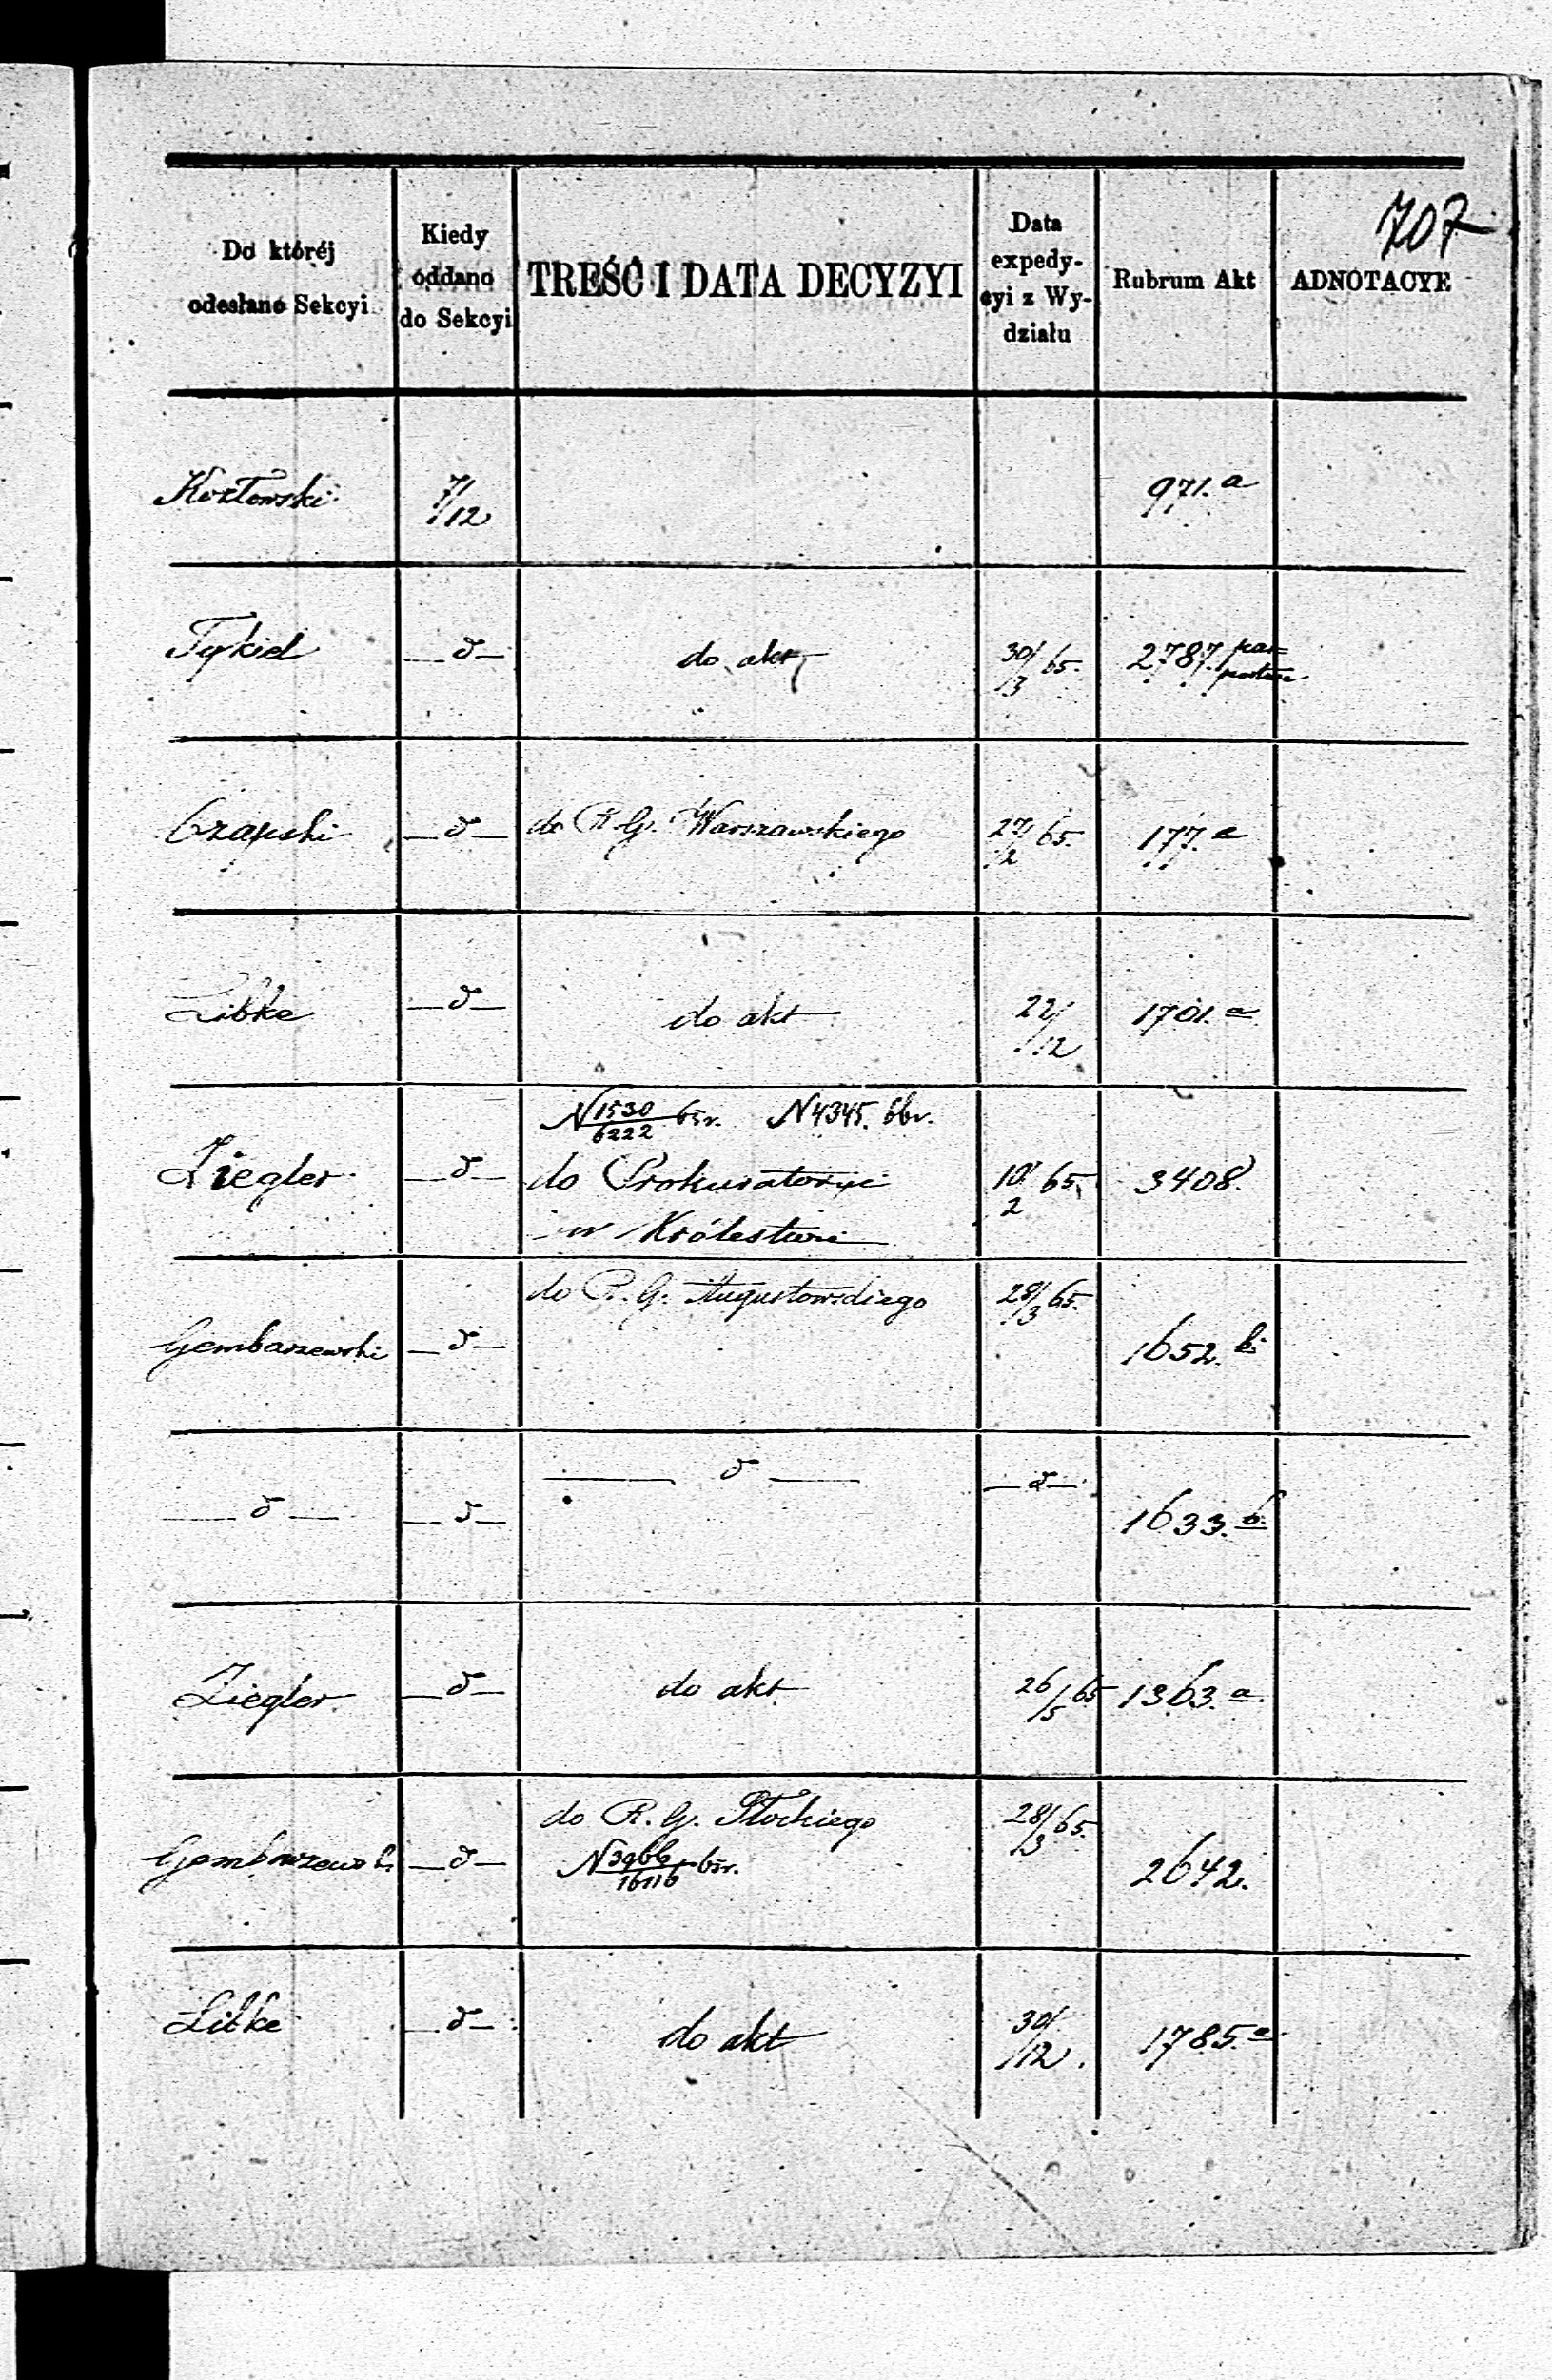 707
Do któréj odesłano Sekcyi
Kiedy oddano do Sekcyi
TREŚĆ I DATA DECYZYI
Data expedycyi z Wydziału
Rubrum Akt
ADNOTACYE
Kozłowski 7/12 971. a
Tykiel — d — do akt 30/3 65. 2787.
Czapski — d — do R. G. Warszawskiego 27/2 65. 177. a
Libke — d — do akt 22/12 1701. a
N 1530/6222 65r. N 4345. 66r.
Ziegler — d — do Prokuratoryi 10/2 65. 3408.
w Królestwie
do R. G. Augustowskiego 28/3 65.
Gembarzewski — d — 1652. b.
— d — — d — — d — — d — 1633. b.
Ziegler — d — do akt 26/5 65 1363. a.
do R. G. Płockiego 28/3 65.
Gembarzewski — d — N 3966/16116 65r. 2642.
Libke — d — do akt 30/12. 1785. a